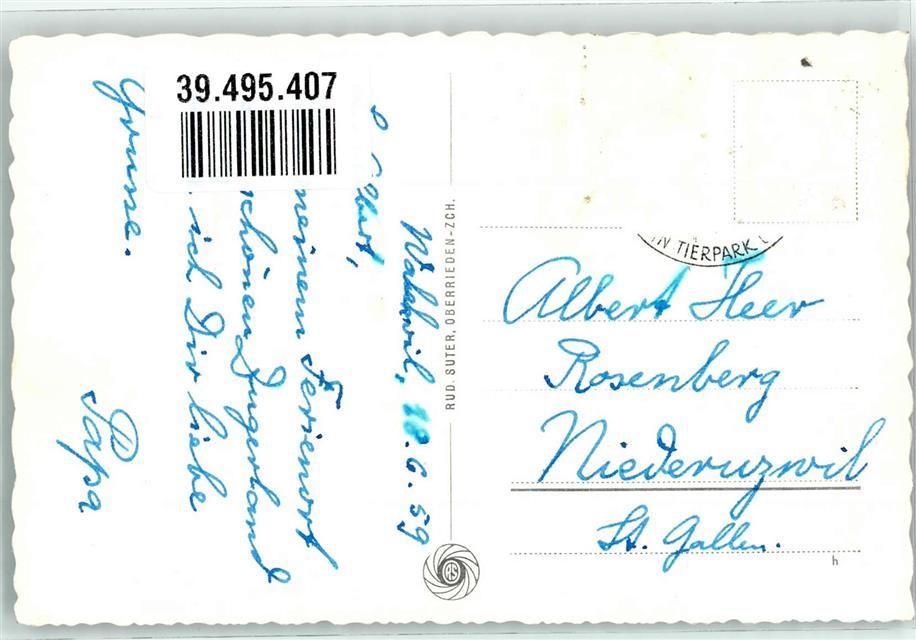 39.495.407
Walchwil, 18.6.59
meinem Ferienort
schönen Zugerland
ich Dir liebe
Grüsse.
Papa
RUD. SUTER, OBERRIEDEN-ZCH.
RS
IN TIERPARK
Albert Heer
Rosenberg
Niederuzwil
St. Gallen.
h